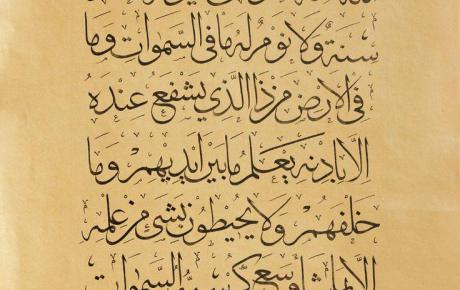 سنة ولا نوم له ما في السموات وما
في الارض من ذا الذي يشفع عنده
الا باذنه يعلم ما بين ايديهم وما
خلفهم ولا يحيطون بشيء من علمه
الا بما شاء وسع كرسيه السموات